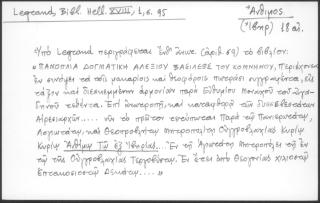 Legrand, Bibl. Hell. XVIII, 1, σ. 95
Ἄνθιμος
(Ἰβηρ) 18 αἰ.
Ὑπὸ Legrand περιγράφεται (ἀριθ. 69) τὸ βιβλίον:
"ΠΑΝΟΠΛΙΑ ΔΟΓΜΑΤΙΚΗ ΑΛΕΞΙΟΥ ΒΑΣΙΛΕΩΣ ΤΟΥ ΚΟΜΝΗΝΟΥ, Περιέχουσα
ἐν συνόψει τὰ τοῖς μακαρίοις καὶ θεοφόροις πατράσι συγγραφέντα, εἰς
τάξιν καὶ διεσκεμμένην ἁρμονίαν παρὰ Εὐθυμίου Μοναχοῦ τοῦ Ζιγα-
βηνοῦ τεθέντα. Ἐπὶ ἀνατροπῇ καὶ καταφθορᾷ τῶν δυσσεβεστάτων
Αἱρεσιαρχῶν..... νῦν τὸ πρῶτον τυπωθεῖσα Παρὰ τοῦ Πανιερωτάτου,
Λογιωτάτου, καὶ Θεοπροβλήτου Μητροπολίτου Οὐγγροβλαχίας Κυρίου
Κυρίου Ἀνθίμου Τοῦ ἐξ Ἰβηρίας... Ἐν τῇ Ἁγιωτάτῃ Μητροπόλει τῇ ἐν
τῷ τῆς Οὐγγροβλαχίας Τεργοβύστῳ. Ἐν ἔτει ἀπὸ Θεογονίας χιλιοστῷ
ἑπτακοσιοστῷ Δεκάτῳ...."